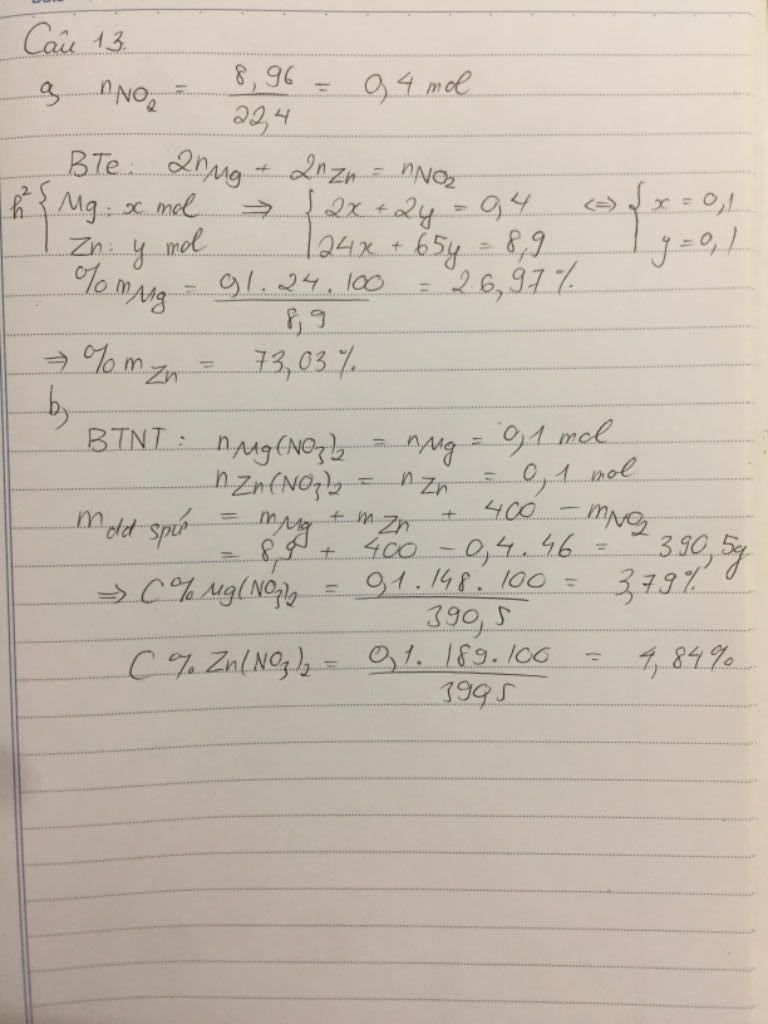 Câu 13.
a, nNO₂ = 8,96 / 22,4 = 0,4 mol
BTe: 2nMg + 2nZn = nNO₂
h² { Mg: x mol ⇒ { 2x + 2y = 0,4 ⇔ { x = 0,1
Zn: y mol 24x + 65y = 8,9 y = 0,1
%mMg = 0,1.24.100 / 8,9 = 26,97%
⇒ %mZn = 73,03%.
b,
BTNT: nMg(NO₃)₂ = nMg = 0,1 mol
nZn(NO₃)₂ = nZn = 0,1 mol
mdd spứ = mMg + mZn + 400 - mNO₂
= 8,9 + 400 - 0,4.46 = 390,5g
⇒ C% Mg(NO₃)₂ = 0,1.148.100 / 390,5 = 3,79%
C% Zn(NO₃)₂ = 0,1.189.100 / 390,5 = 4,84%